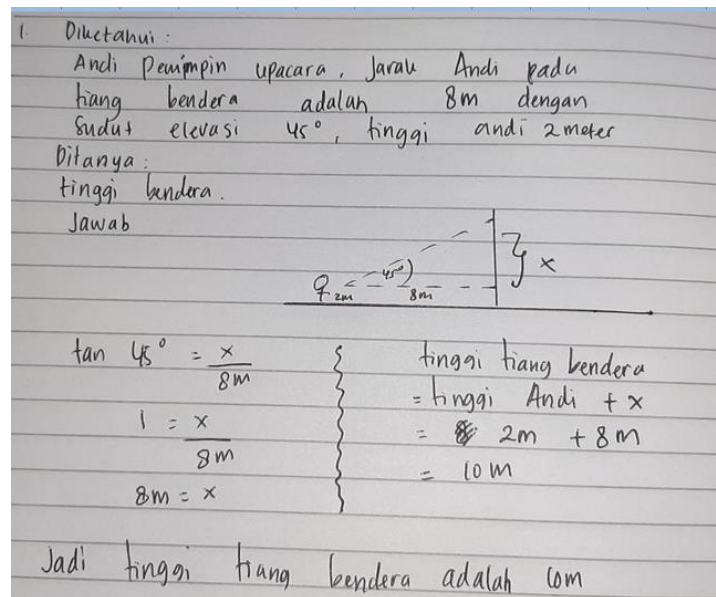 1. Diketahui :
Andi Pemimpin upacara, Jarak Andi pada
tiang bendera adalah 8m dengan
Sudut elevasi 45°, tinggi andi 2 meter
Ditanya :
tinggi bendera.
Jawab
45°
x
2m
8m
tan 45° = x
8m
1 = x
8m
8m = x
tinggi tiang bendera
= tinggi Andi + x
= 2m + 8m
= 10m
Jadi tinggi tiang bendera adalah 10m